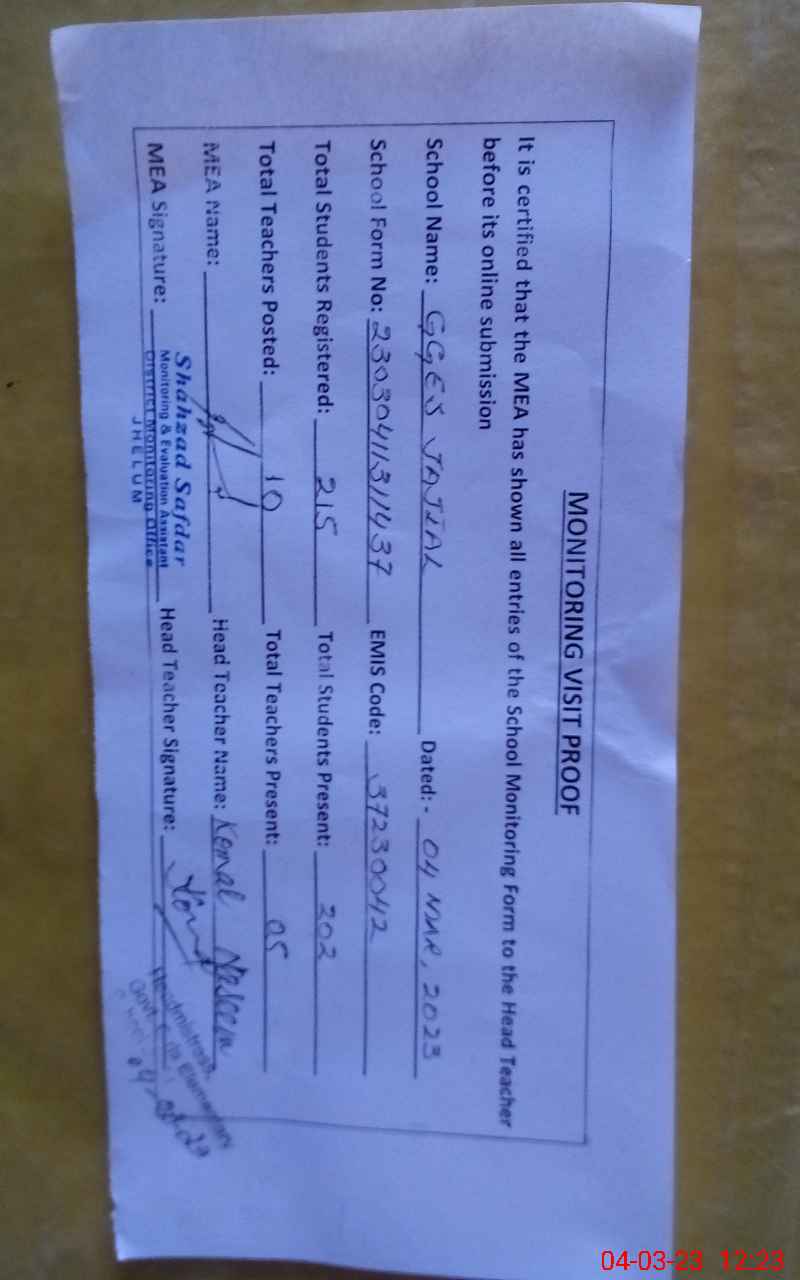 MONITORING VISIT PROOF
It is certified that the MEA has shown all entries of the School Monitoring Form to the Head Teacher
before its online submission
School Name: GGES JATIAL Dated: - 04 MAR, 2023
School Form No: 2303041311437 EMIS Code: 37230042
Total Students Registered: 215 Total Students Present: 202
Total Teachers Posted: 10 Total Teachers Present: 05
MEA Name: Head Teacher Name: Komal Naseem
MEA Signature: Head Teacher Signature:
Shahzad Safdar
Monitoring & Evaluation Assistant
District Monitoring Office
JHELUM
Headmistress,
Govt. Elementary
04-03-23 12:23